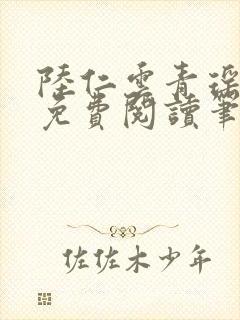 陸仁雲青瑤
免費閱讀筆
佐佐木少年